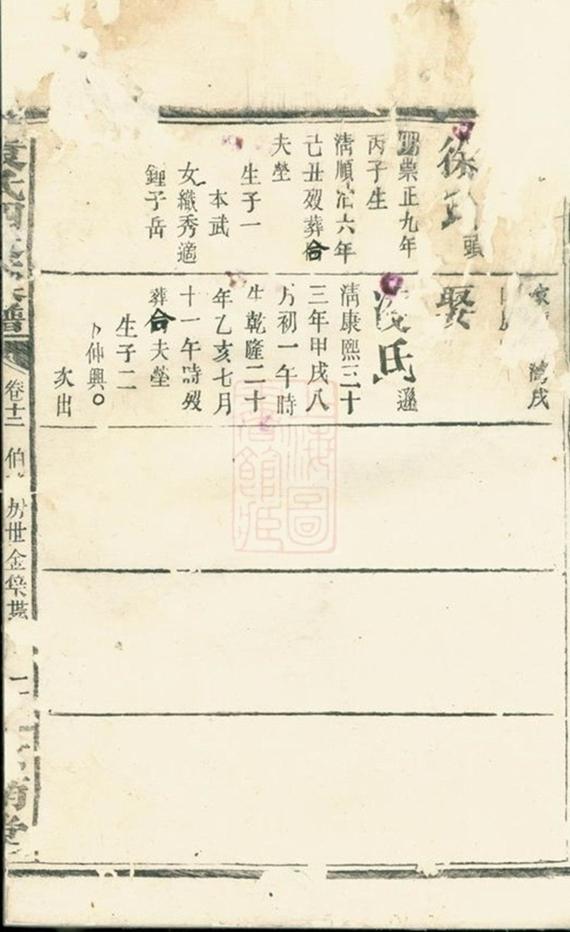 徐
頭
明崇正九年
丙子生
清順治六年
己丑歿葬合
夫塋
生子一
本武
女織秀適
鍾子岳
灣戌
娶
凌氏
遜
清康熙三十
三年甲戌八
月初一午時
生乾隆二十
年乙亥七月
十一午時歿
葬合夫塋
生子二
卜仲興○
次出
氏四修族譜
卷十二
伯
房世金
堂
上海圖書館藏